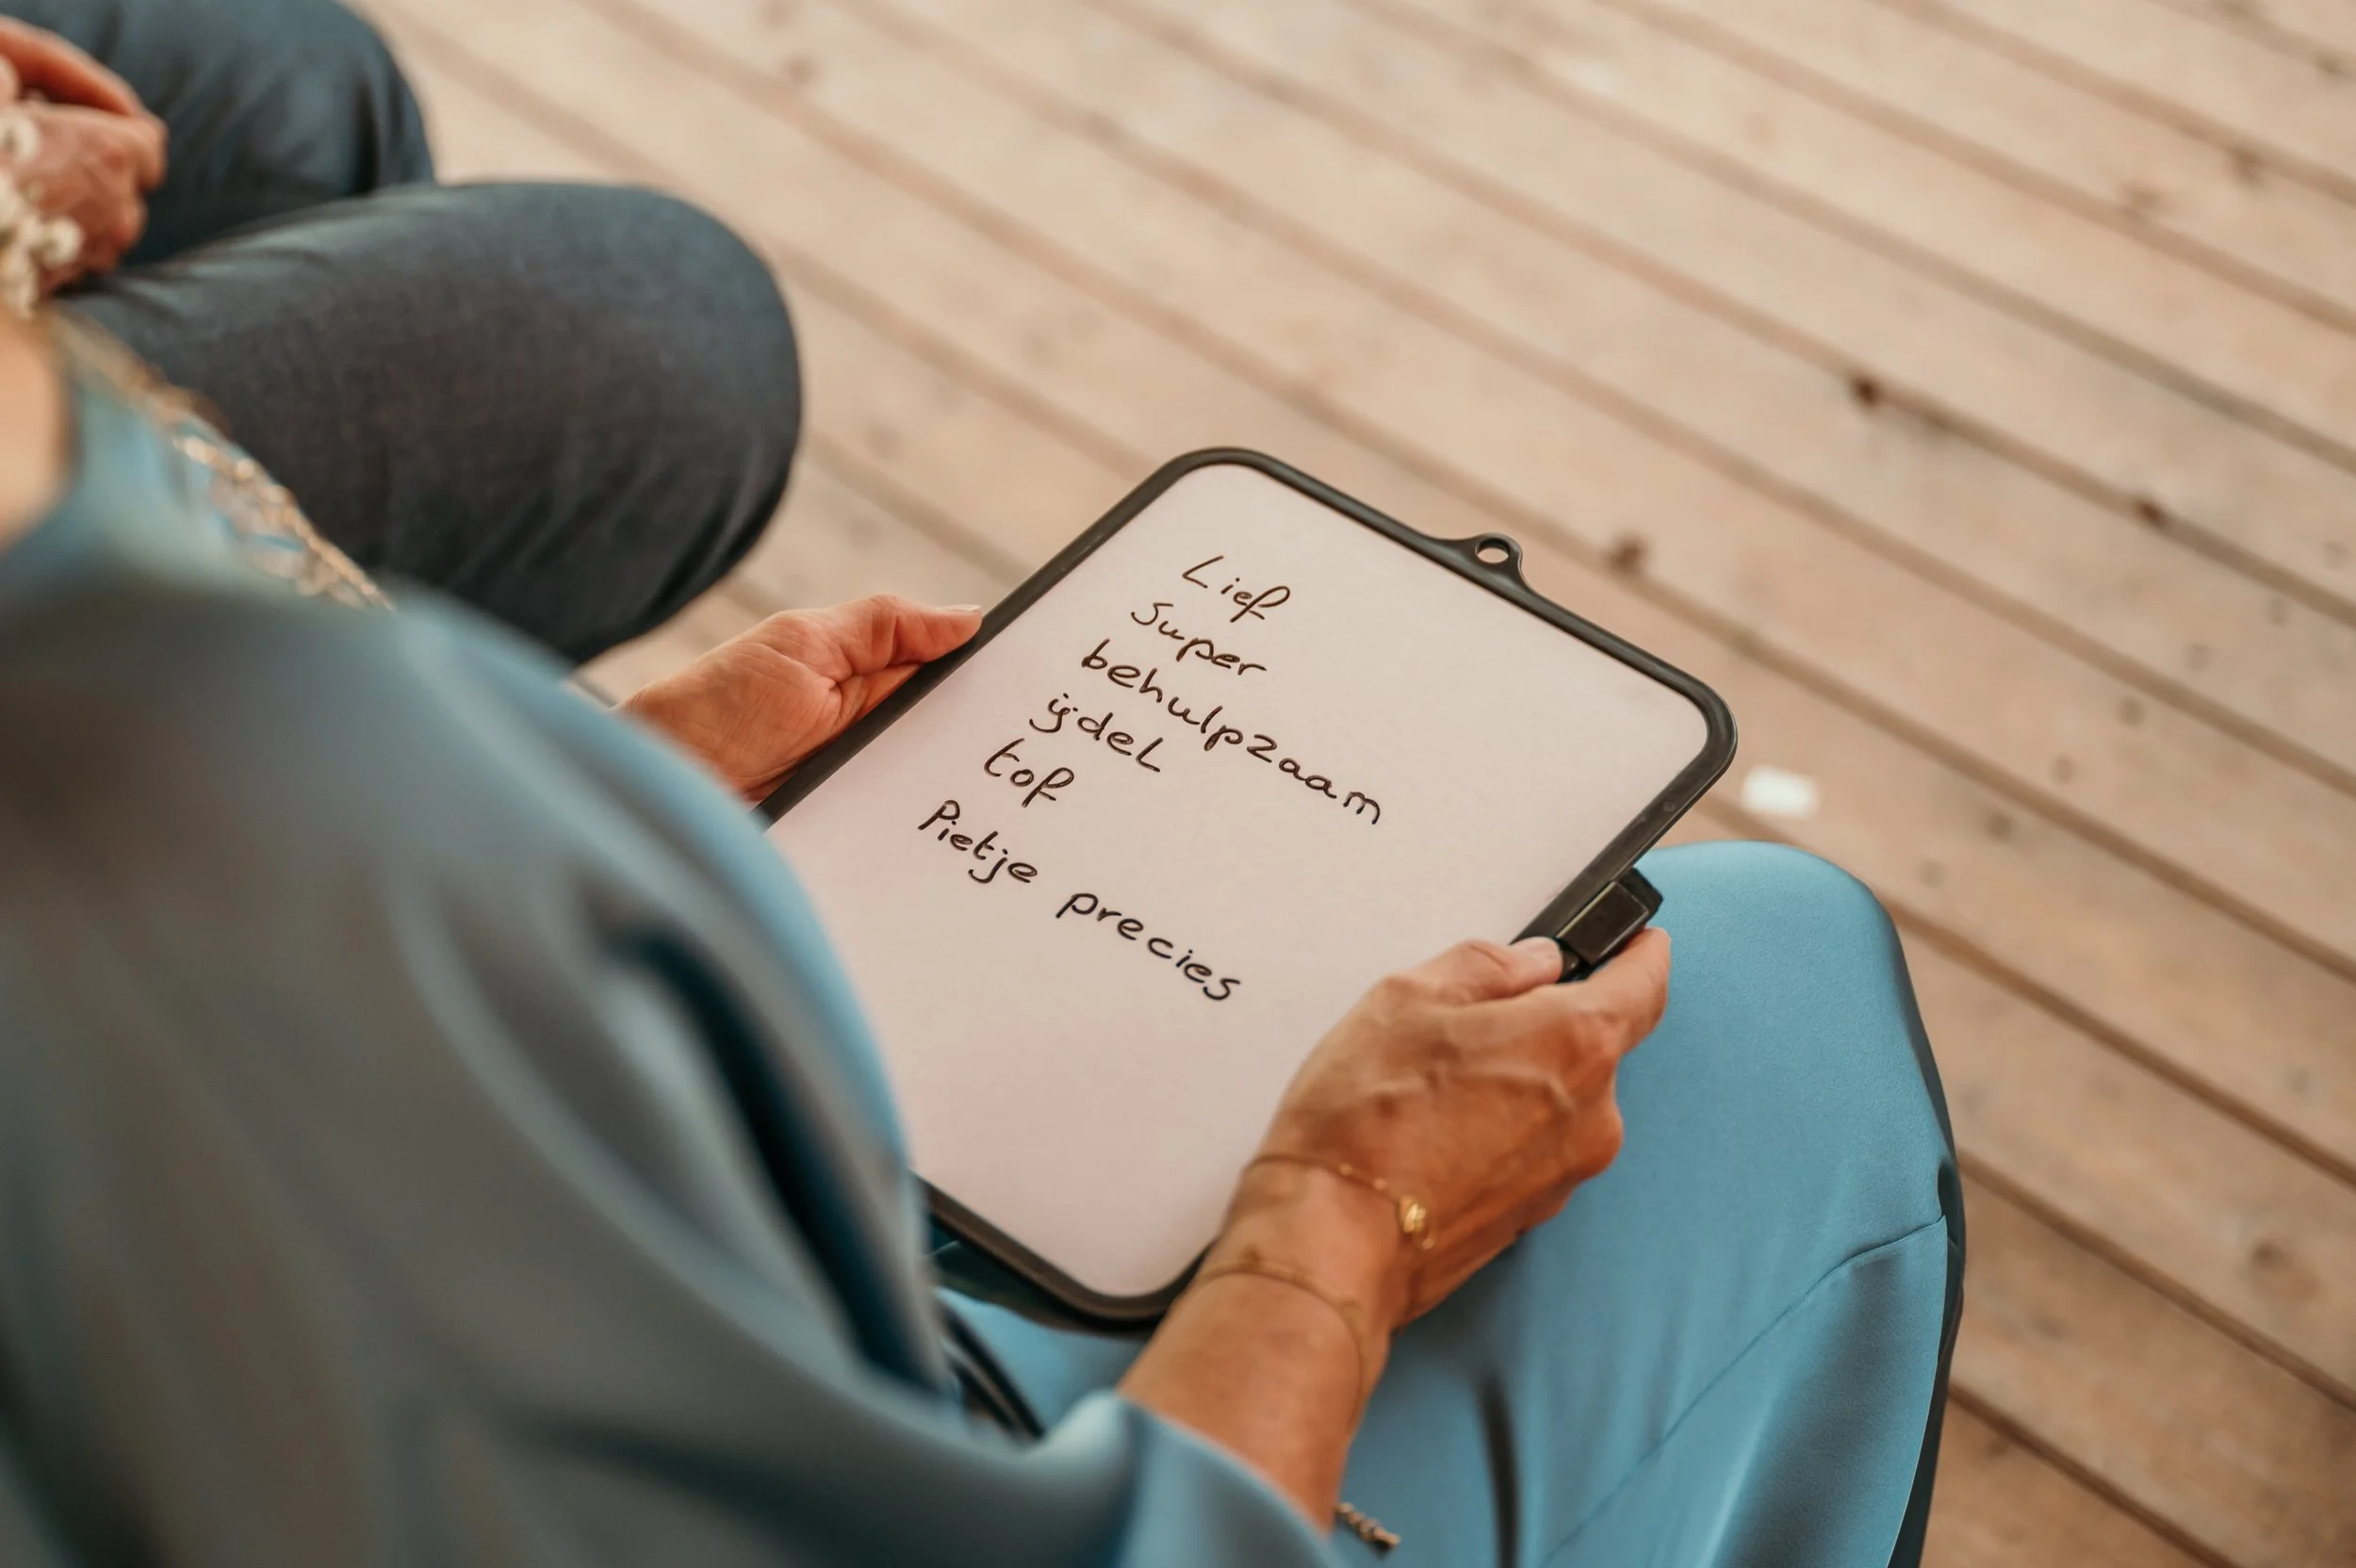 Lief
Super
behulpzaam
ijdel
tof
Pietje precies